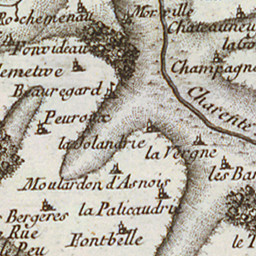 Rochemenau
Morville
Chateauneu
Fonvideau
la Go
lemetwe
Champagne
Beauregard
Charente
Peuroux
la Jolandrie
la Vergne
les Bar
Moulardon d'Asnois
Bergeres
la Palicaudrie
Rue
le Peu
Fontbelle
le T